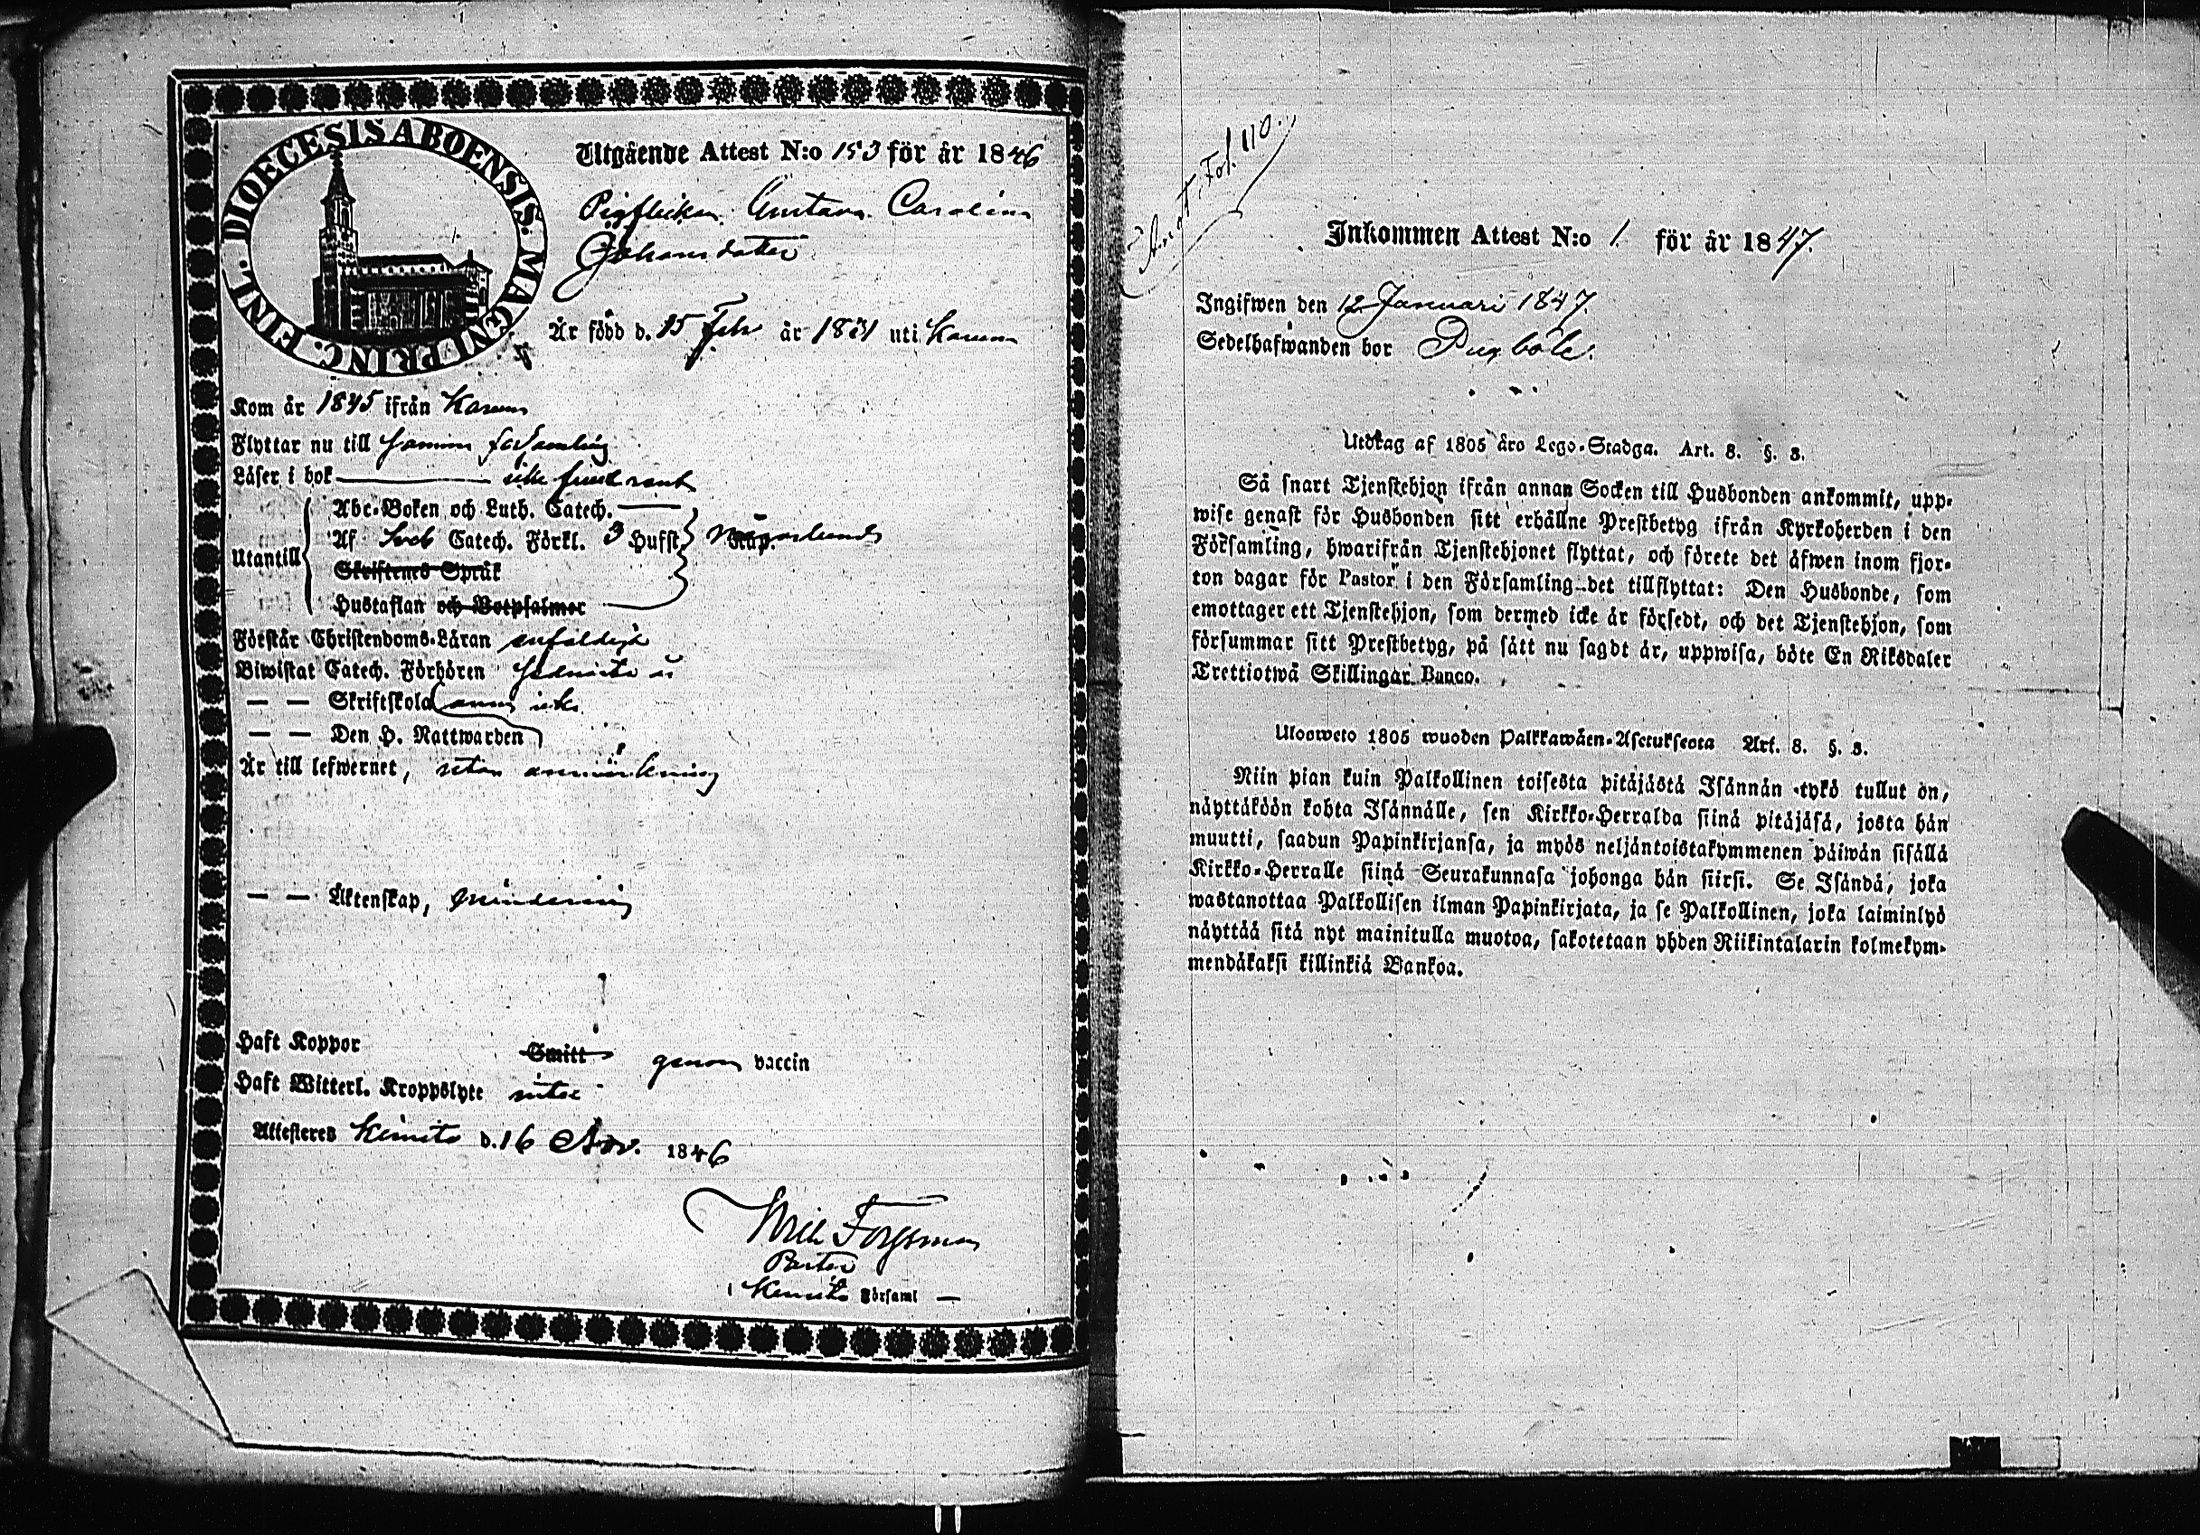 DIOECESIS ABOENSIS. MAGNI PRINC. FINL.
Utgående Attest N:o 153 för år 1846
Pigflickan Gustava Carolina
Johansdotter
Är född d. 15 Febr år 1831 uti Karuna
Kom år 1845 ifrån Karuna
Flyttar nu till församling
Läser i bok icke
Abc-Boken och Luth. Catech.
Utantill Af Sveb Catech. Förkl. 3 Hufst.
Skriftenes Språk
Hustaflan och Botpsalmer
Förstår Christendoms-Läran enfaldigt
Biwistat Catech. Förhören
— — Skriftskola ännu icke
— — Den H. Nattwarden
Är till lefwernet, utan anmärkning
— — Äktenskap, minderårig
Haft Koppor Smitt genom vaccin
Haft Witterl. Kroppslyte intet
Attesteres Kimito d. 16 Nov. 1846
Forssman
Pastor
i Kimito Församl —
Annot. Fol. 110.
Inkommen Attest N:o 1. för år 1847.
Ingifwen den 12 Januari 1847.
Sedelhafwanden bor Pugböle.
Utdrag af 1805 åro Lego-Stadga. Art. 8. §. 3.
Så snart Tjenstehjon ifrån annan Socken till Husbonden ankommit, upp-
wise genast för Husbonden sitt erhållne Prestbetyg ifrån Kyrkoherden i den
Församling, hwarifrån Tjenstehjonet flyttat, och förete det äfwen inom fjor-
ton dagar för Pastor i den Församling det tillflyttat: Den Husbonde, som
emottager ett Tjenstehjon, som dermed icke är försedt, och det Tjenstehjon, som
försummar sitt Prestbetyg, på sätt nu sagdt är, uppwisa, böte En Riksdaler
Trettiotwå Skillingar Banco.
Ulosweto 1805 wuoden Palkkawäen-Asetuksesta Art. 8. §. 3.
Niin pian kuin Palkollinen toisesta pitäjästä Isännän tykö tullut on,
näyttäköön kohta Isännälle, sen Kirkko-Herralda siinä pitäjäsä, josta hän
muutti, saadun Papinkirjansa, ja myös neljäntoistakymmenen päiwän sisällä
Kirkko-Herralle siinä Seurakunnasa johonga hän siirsi. Se Isändä, joka
wastanottaa Palkollisen ilman Papinkirjata, ja se Palkollinen, joka laiminlyö
näyttää sitä nyt mainitulla muotoa, sakotetaan yhden Riikintalarin kolmekym-
mendäkaksi killinkiä Bankoa.